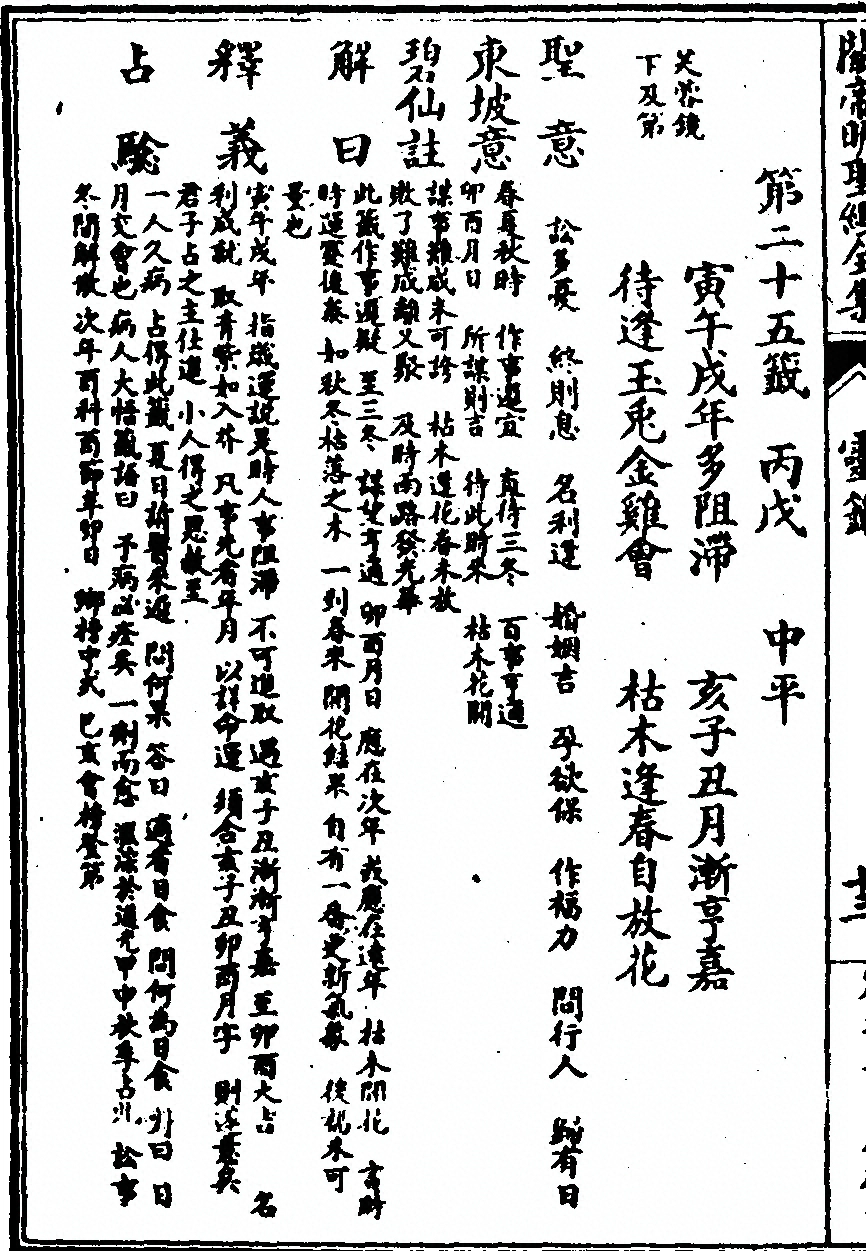 關帝明聖經全集
靈籤
第二十五籤 丙戊 中平
芙蓉鏡
下及第
寅午戌年多阻滯 亥子丑月漸亨嘉
待逢玉兎金雞會 枯木逢春自放花
聖意 訟多憂 終則息 名利遲 婚姻吉 孕欲保 作福力 問行人 歸有日
東坡意 春夏秋時 作事遲宜 直待三冬 百事亨通
卯酉月日 所謀則吉 待此時來 枯木花開
碧仙註 謀事難成未可誇 枯木運花春未放
散了難成離又聚 及時雨路發光華
解曰 此籤作事遲疑 至三冬 謀望亨通 卯酉月日 應在次年 或應在遠年 枯木開花 言時
時運憂後泰 如秋冬枯落之木 一到春來 開花結果 自有一番更新氣象 後說未可
量也
釋義 寅午戌年 指歲運說是時人事阻滯 不可進取 遇亥子丑漸漸亨嘉 至卯酉大吉 名
利成就 取青紫如入芥 凡事先看年月 以詳命運 須合亥子丑卯酉月字 則遂意矣
君子占之主仕遷 小人得之恩赦至
占驗 一人久病 占得此籤 夏日請醫來遲 問何果 答曰 適有日食 問何為日食 對曰 日
月交會也 病人大悟籤語曰 予病必痊矣 一劑而愈 溫陵於通元甲申秋季占 訟事
冬間解散 次年酉科酉節幸卯日 鄉榜中式 巳亥會榜登第